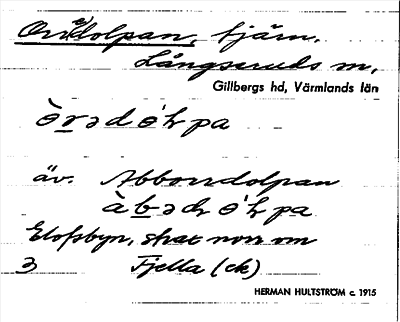 On(e)dolpan, tjärn.
Långseruds sn,
Gillbergs hd, Värmlands län
äv. Abborrdolpan
Elofsbyn, strax norr om
3 Fjella (ek)
HERMAN HULTSTRÖM c. 1915